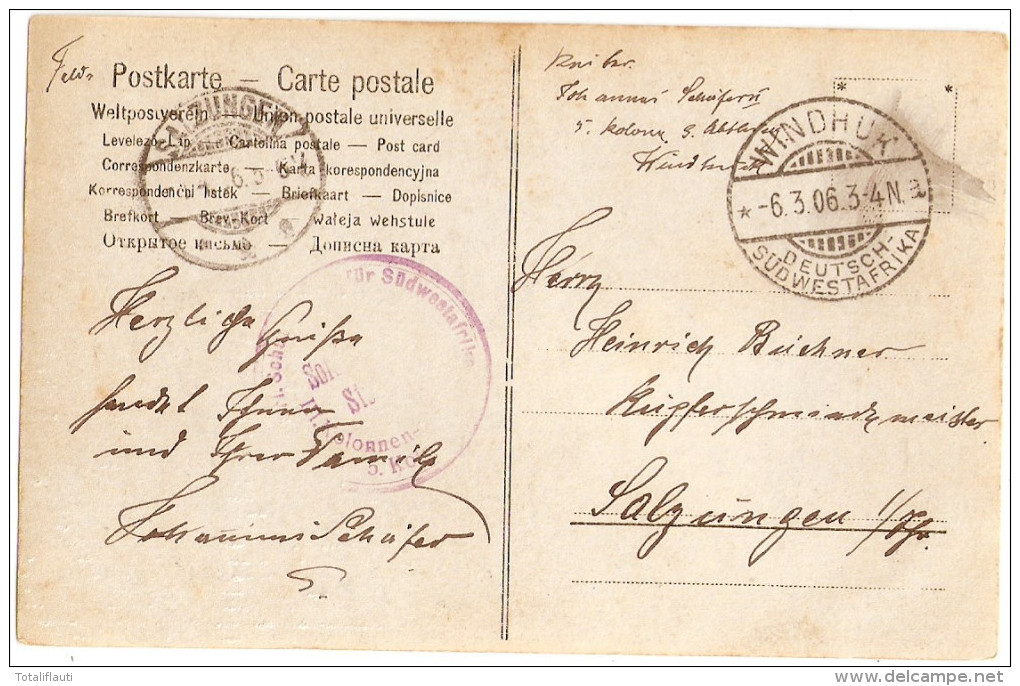 Feld-
Postkarte – Carte postale
Weltpostverein – Union postale universelle
Levelező-Lap – Cartolina postale – Post card
Correspondenzkarte – Karta korespondencyjna
Korrespondenčni listek – Briefkaart – Dopisnice
Brefkort – Brev-Kort – waleja wehstule
Открытое письмо – Дописна карта
SALZUNGEN
für Südwestafrika
Kolonnen-
Herzliche Grüße
sendet Ihnen
und Ihrer Familie
Johannes Schäfer
Johannes Schäfer
5. Kolonne
Windhuk
WINDHUK
* -6.3.06.3-4N.
DEUTSCH-
SÜDWESTAFRIKA
Herrn
Heinrich Büchner
Kupferschmiedemeister
Salzungen
Totaliflauti
delcampe.net